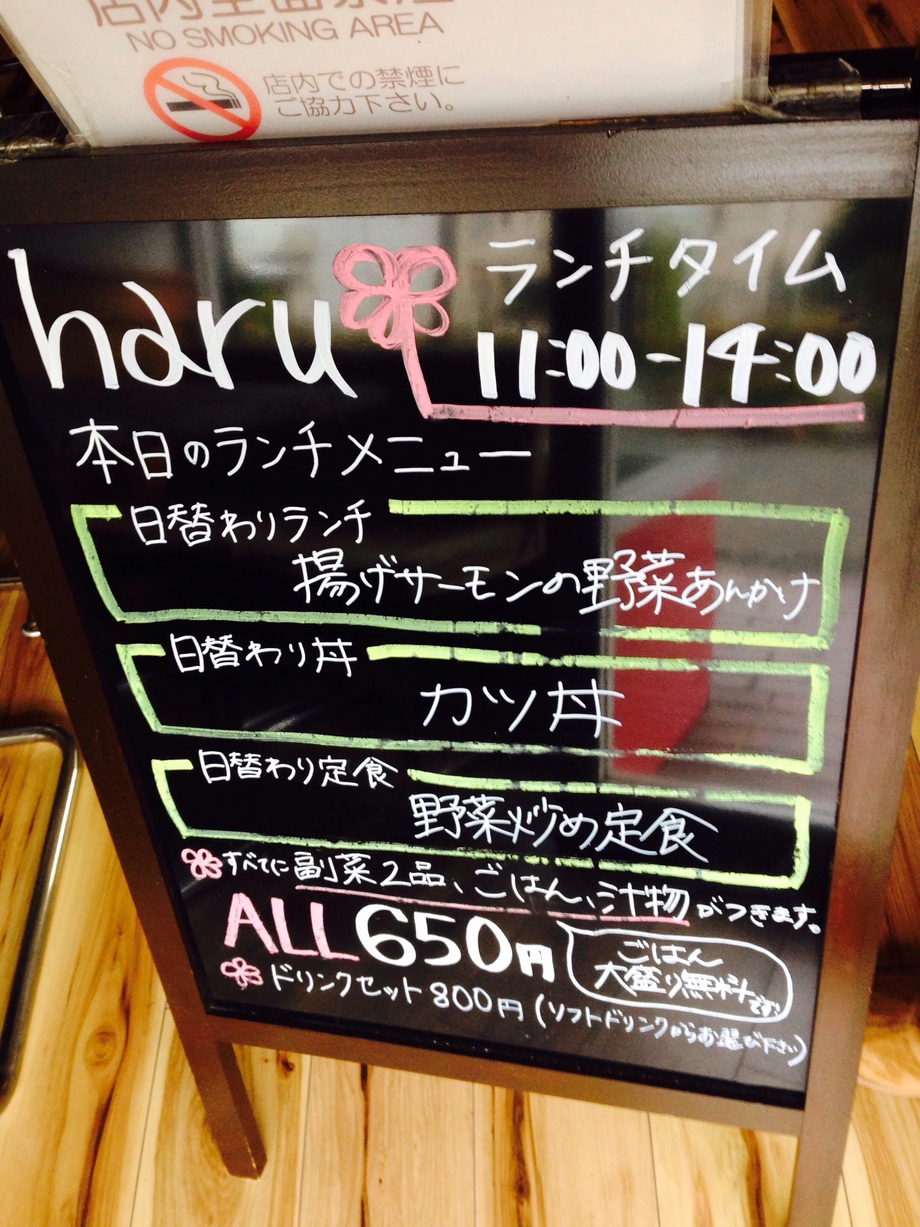 店内全面禁煙
NO SMOKING AREA
店内での禁煙に
ご協力下さい。
haru
ランチタイム
11:00-14:00
本日のランチメニュー
日替わりランチ
揚げサーモンの野菜あんかけ
日替わり丼
カツ丼
日替わり定食
野菜炒め定食
すべてに副菜2品、ごはん、汁物がつきます。
ALL 650円
ごはん
大盛り無料です
ドリンクセット 800円 (ソフトドリンクからお選び下さい)